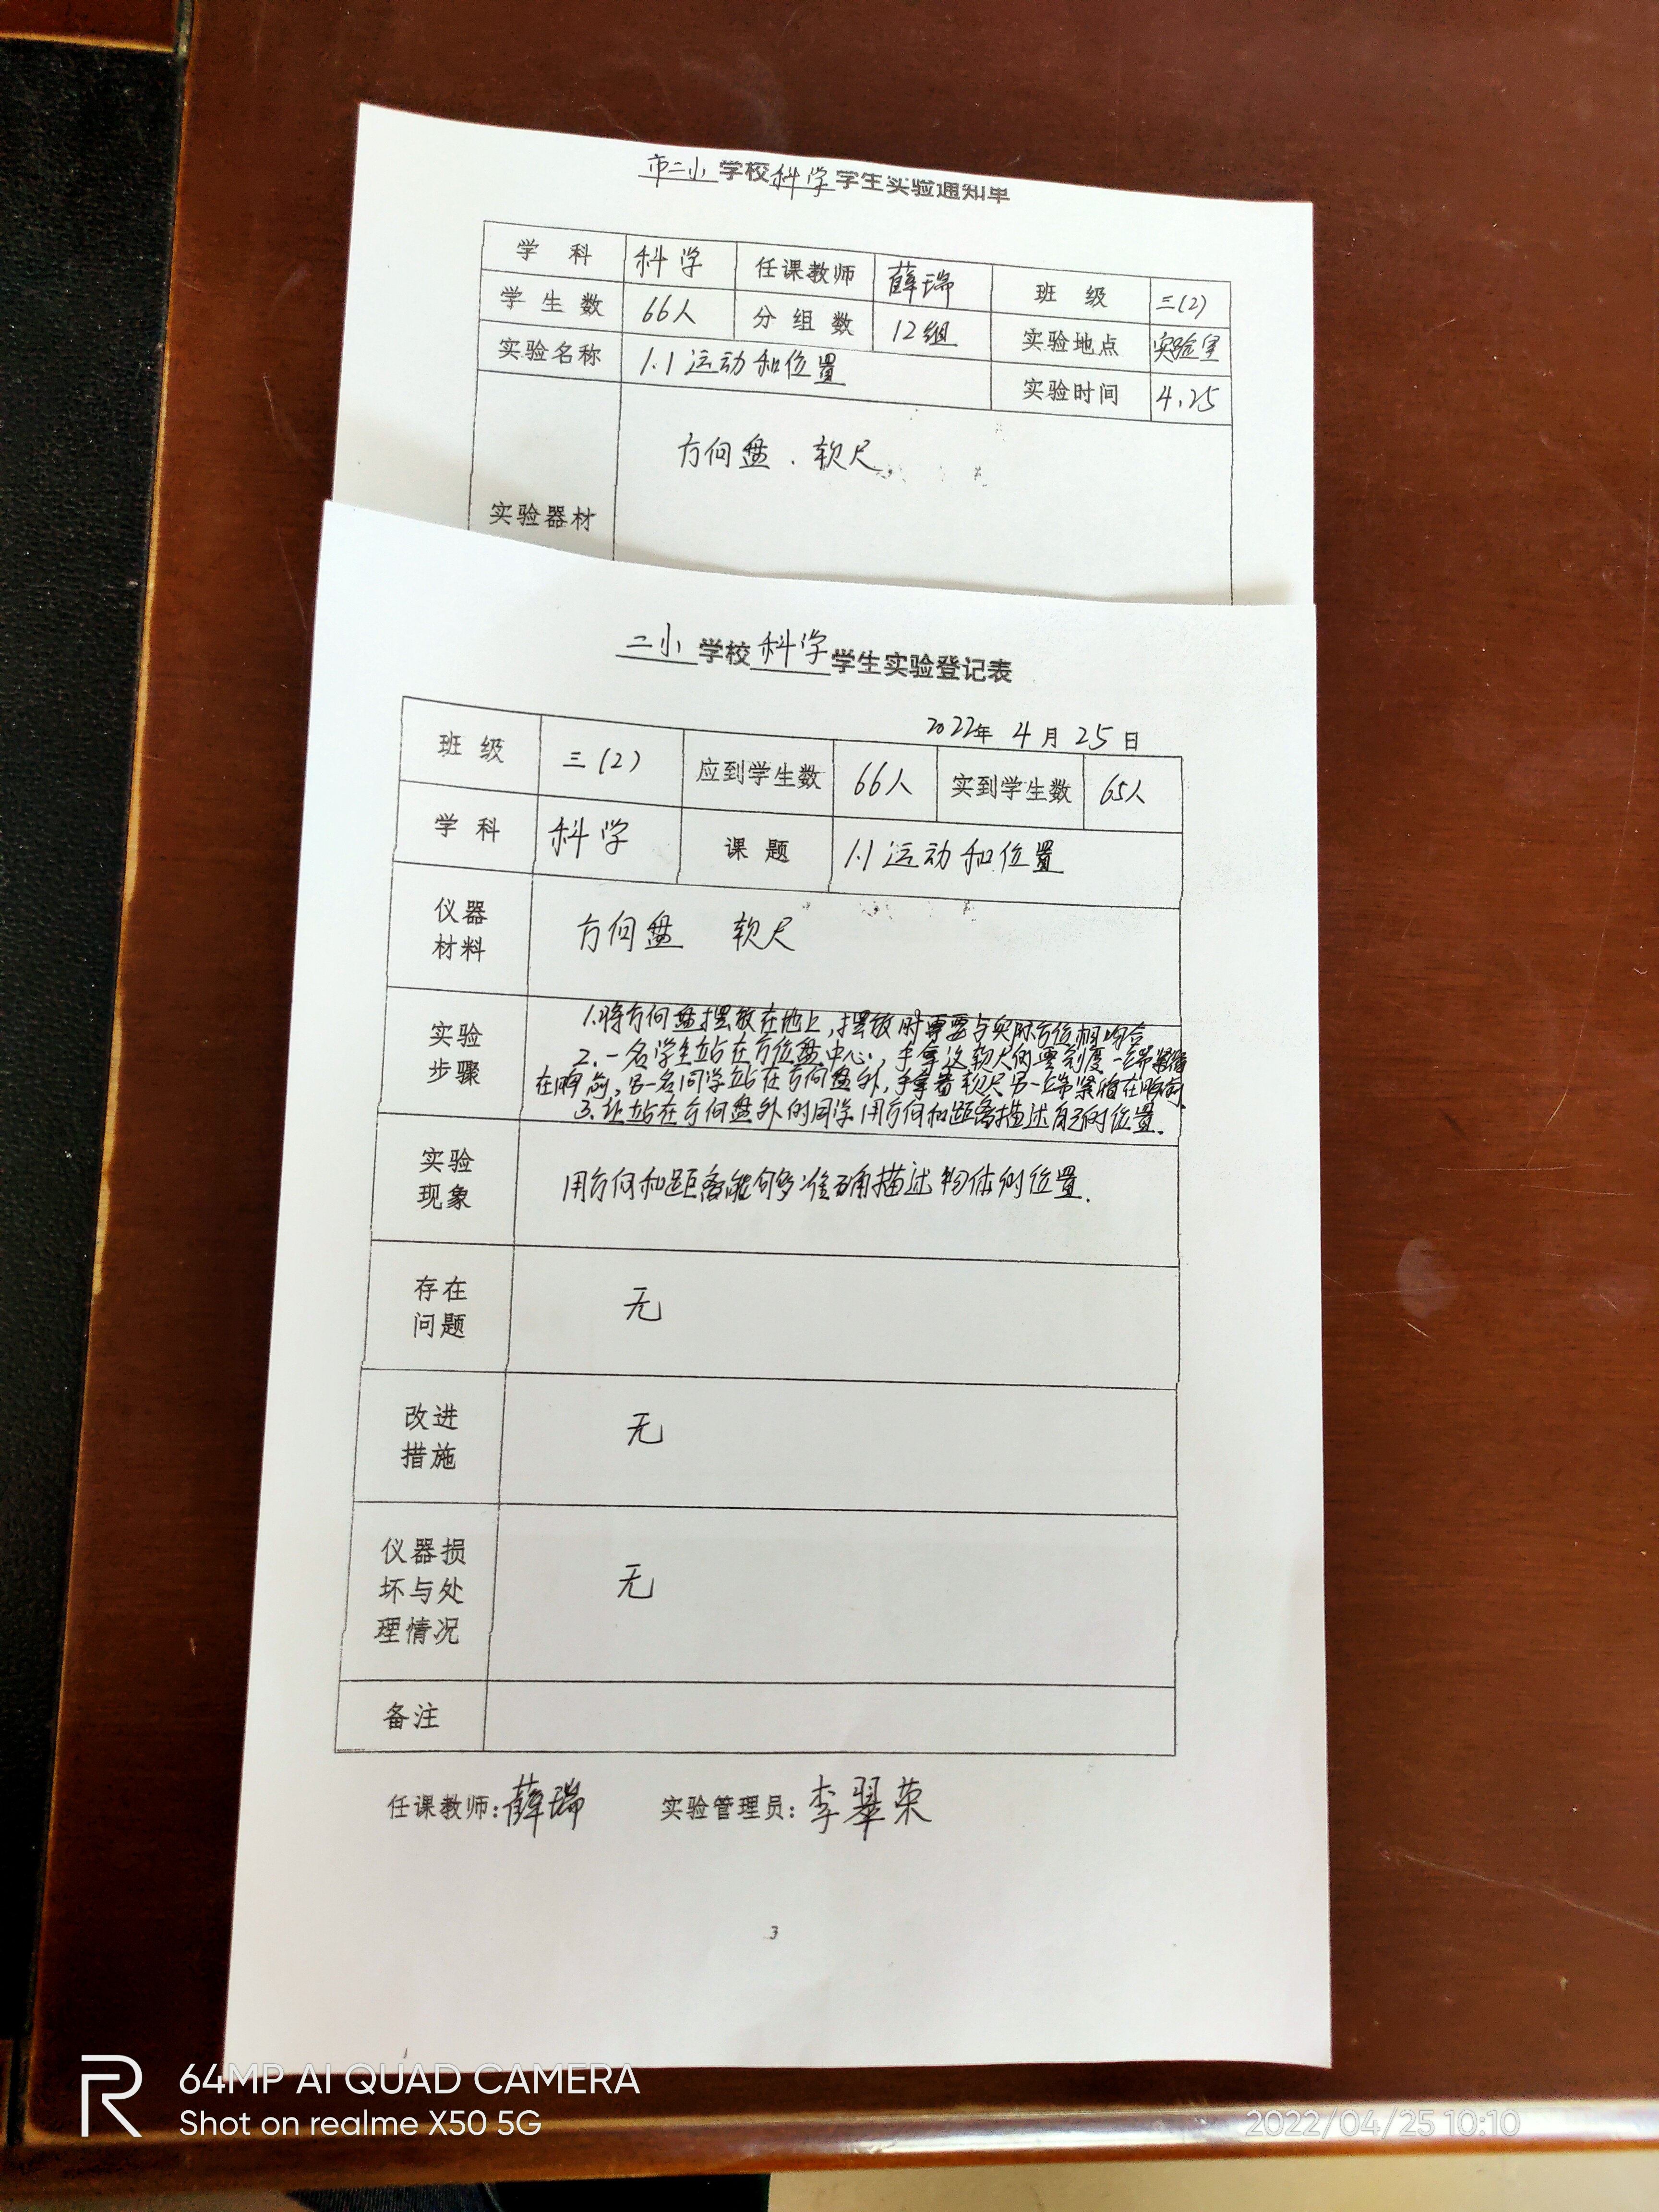 市二小学校科学学生实验通知单
学 科 科学 任课教师 薛瑞 班 级 三(2)
学生数 66人 分组数 12组 实验地点 实验室
实验名称 1.1运动和位置 实验时间 4.25
实验器材 方向盘.软尺
二小学校科学学生实验登记表
2022年4月25日
班 级 三(2) 应到学生数 66人 实到学生数 65人
学 科 科学 课 题 1.1运动和位置
仪器
材料
方向盘 软尺
实验
步骤
1.将方向盘摆放在地上,摆放时需要与实际方位相吻合
2.一名学生站在方位盘中心,手拿这软尺的零刻度一端紧贴
在胸前,另一名同学站在方向盘外,手拿着软尺另一端紧贴在胸前.
3.让站在方向盘外的同学用方向和距离描述自己的位置.
实验
现象
用方向和距离能够准确描述物体的位置.
存在
问题
无
改进
措施
无
仪器损
坏与处
理情况
无
备注
任课教师:薛瑞 实验管理员:李翠荣
3
64MP AI QUAD CAMERA
Shot on realme X50 5G
2022/04/25 10:10